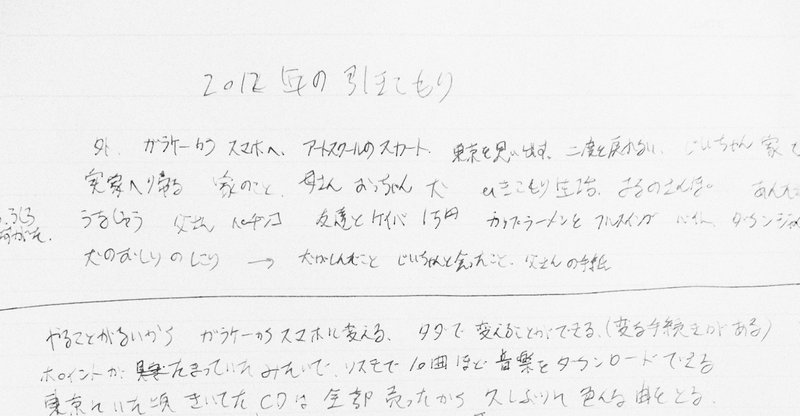 2012年の引きこもり
外 ガラケーから スマホへ、アートスクールのスカート、東京を思い出す、二度と戻れない、じいちゃん 家で
実家へ帰る 家のこと、母さん おっちゃん 犬 ひきこもり生活、よるのさんぽ。
うしろ 父さん パチンコ 友達とケイバ 1万円 カップラーメンと フルスイング バイト、ダウンジャ
犬のおしりのしこり → 犬がしんだこと じいちゃんと会ったこと、父さんの手紙
やることがないから ガラケーからスマホに変える、タダで 変えることができる、(変な手続きがある)
ポイントが たまっていたみたいで、リスモで 10曲ほど 音楽をダウンロードできる
東京にいた頃 きいてたCDは全部 売ったから 久しぶりに 色んな曲をとる、